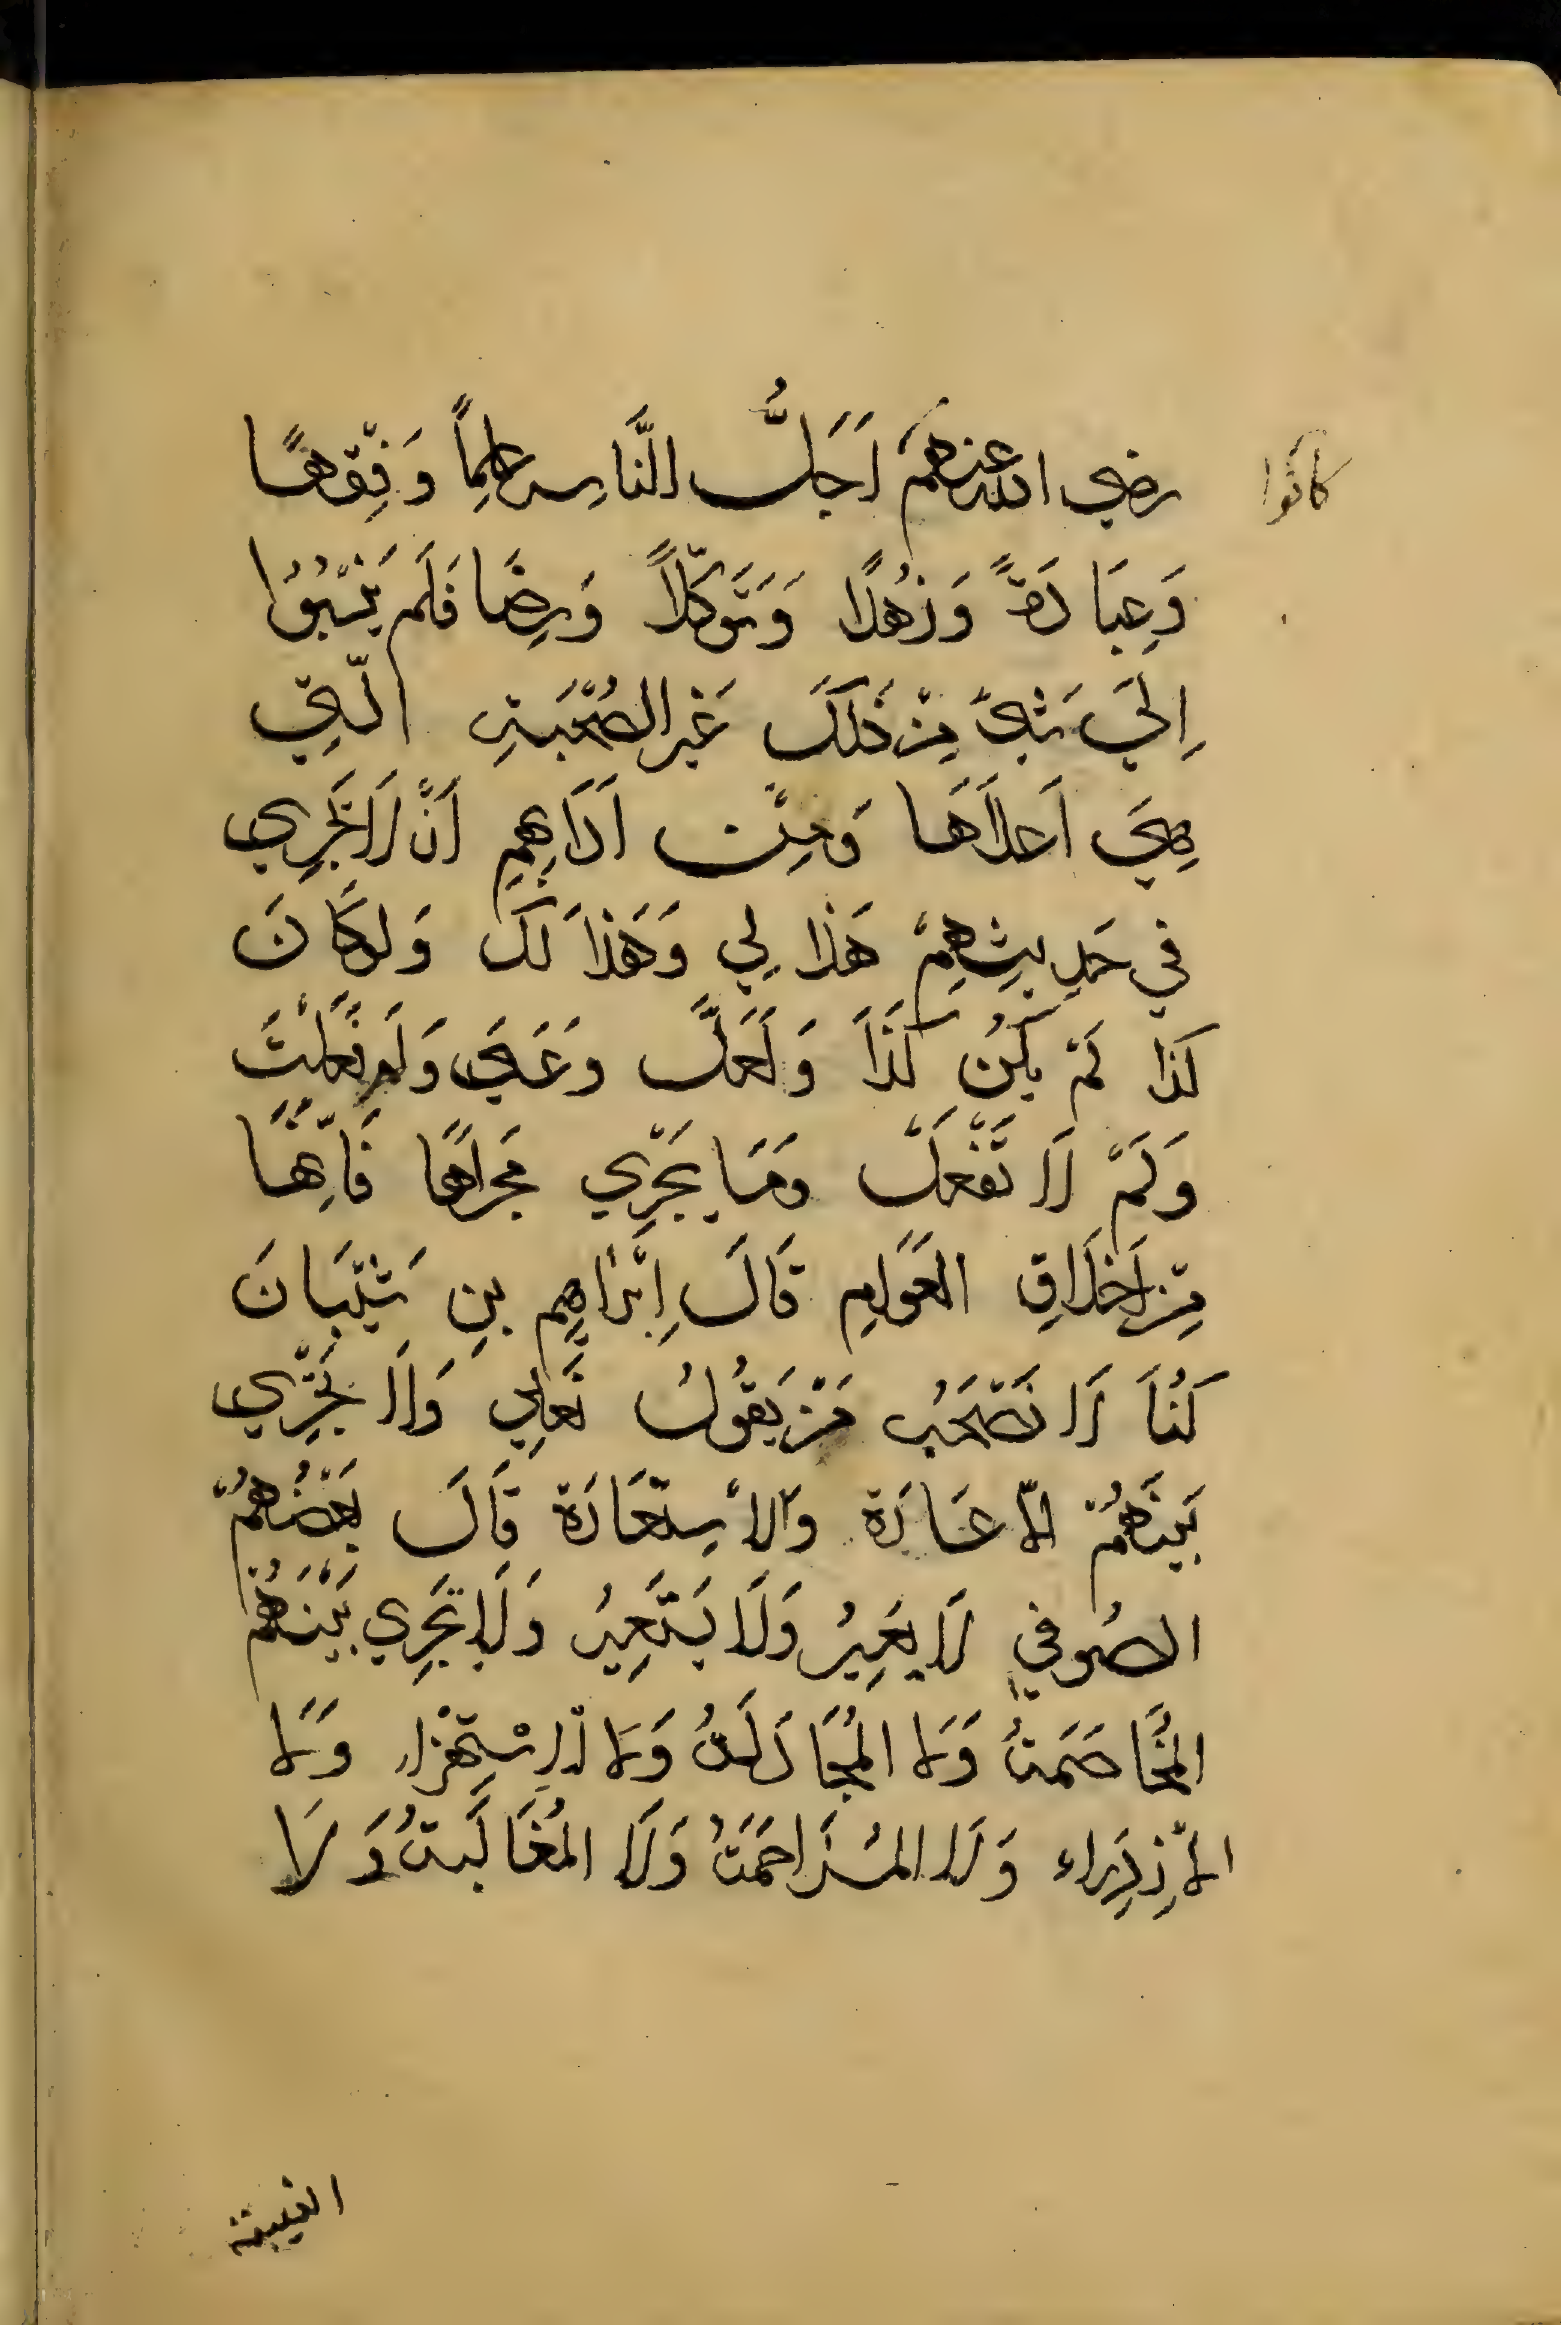 كانوا
رضي الله عنهم اَجَلُّ النَّاسِ عِلمِاً وَفِقْهًا
وَعِبَادَةً وَزُهْدًا وَتَوَكّلاً وَرِضًا فَلَم يُنْسَبُوْا
اِلَيَ شَئٍ مِنْ ذَلكَ غَيرِ الصُحْبَتِ الّتِي
هِيَ اَعلاَهَا وَمِنْ اَدَاَبِهِمِ اَنْ لاَ يَجْرِي
في حَديثِهِمْ هَذا لِي وَهَذاَ لَكَ وَلوكَانَ
كَذا لَمْ يَكُنِ كَذَا وَلَعَلَّ وَعَسَي وَلَم فَعَلْتَ
وَلَمْ لاَ تَفْعَلْ وَمَا يَجْرِي مَجراهَا فَاِنّهَا
مِنْ اَخْلَاقِ العَوَامِ قَالَ اِبْرَاهِيم بِن شَيْبَانَ
كُنَا لاَ نَصْحَبُ مَنْ يَقُولُ نَعلِي وَلاَ يَجْرِي
بَيْنَهُمْ الاّ عَارَة وَالاْسِتعَارَة قَالَ بَعْضُهُمْ
الصُوفي لاَ يِعِيرُ وَلاَ يَستَعِيرُ وَلاَ تَجْرِي بَيْنَهُمْ
المُخَاصَمَتُ وَلاَ المُجَادَلَتُ وَلاَ الاِسْتِهْزاء وَلاَ
الاْزِدِرَاء وَلاَ المُزَاحَمَتُ وَلاَ المُغَالَبَتُ وَلاَ
الغيبة